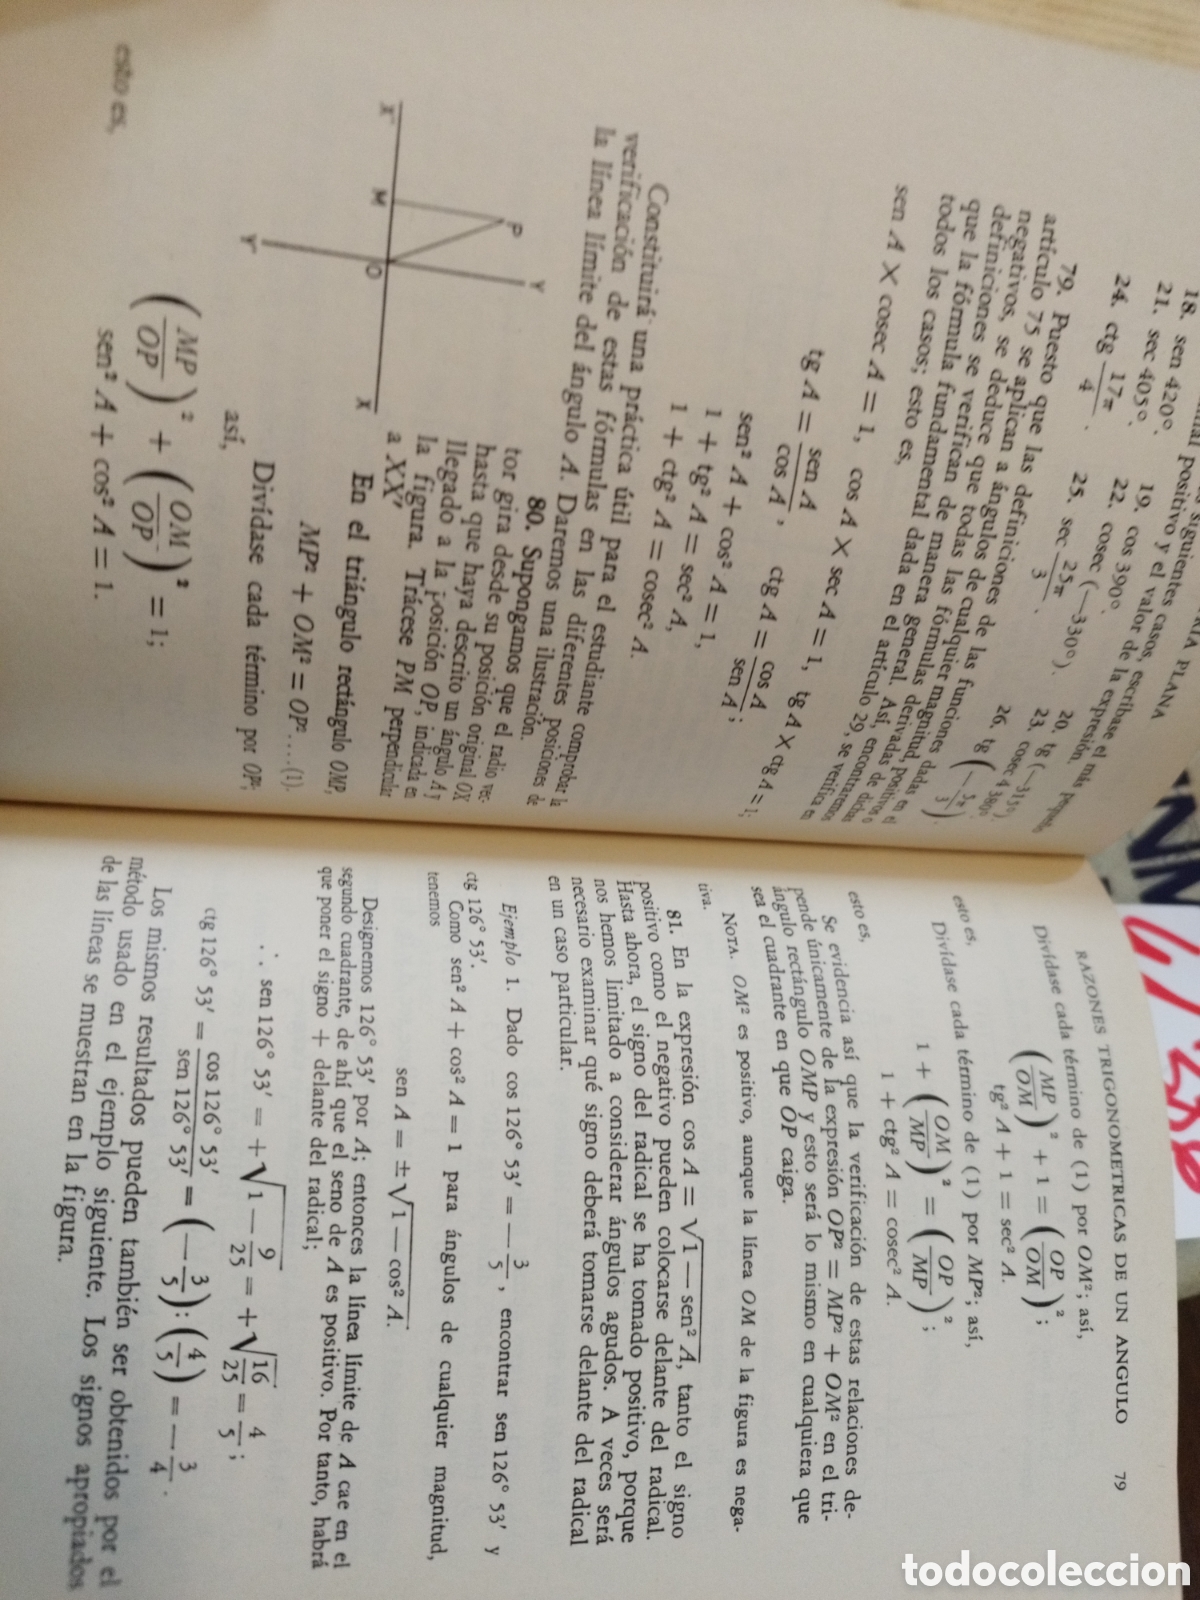 TRIA PLANA
siguientes casos, escríbase el más pequeño
positivo y el valor de la expresión,
18. sen 420°. 19. cos 390°. 20. tg (—315°).
21. sec 405°. 22. cosec (—330°). 23. cosec 4 380°.
24. ctg 17π/4. 25. sec 25π/3. 26. tg (—5π/3).
79. Puesto que las definiciones de las funciones dadas en el
artículo 75 se aplican a ángulos de cualquier magnitud, positivos o
negativos, se deduce que todas las fórmulas derivadas de dichas
definiciones se verifican de manera general. Así, encontraremos
que la fórmula fundamental dada en el artículo 29, se verifica en
todos los casos; esto es,
sen A × cosec A = 1, cos A × sec A = 1, tg A × ctg A = 1;
tg A = sen A/cos A, ctg A = cos A/sen A;
sen² A + cos² A = 1,
1 + tg² A = sec² A,
1 + ctg² A = cosec² A.
Constituirá una práctica útil para el estudiante comprobar la
verificación de estas fórmulas en las diferentes posiciones de
la línea límite del ángulo A. Daremos una ilustración.
80. Supongamos que el radio vec-
tor gira desde su posición original OX
hasta que haya descrito un ángulo A y
llegado a la posición OP, indicada en
la figura. Trácese PM perpendicular
a XX'
P Y
X' M O X
Y'
En el triángulo rectángulo OMP,
MP² + OM² = OP²....(1).
Divídase cada término por OP²;
así,
(MP/OP)² + (OM/OP)² = 1;
esto es,
sen² A + cos² A = 1.
RAZONES TRIGONOMETRICAS DE UN ANGULO 79
Divídase cada término de (1) por OM²; así,
(MP/OM)² + 1 = (OP/OM)²;
esto es,
tg² A + 1 = sec² A.
Divídase cada término de (1) por MP²; así,
1 + (OM/MP)² = (OP/MP)²;
esto es,
1 + ctg² A = cosec² A.
Se evidencia así que la verificación de estas relaciones de-
pende únicamente de la expresión OP² = MP² + OM² en el tri-
ángulo rectángulo OMP y esto será lo mismo en cualquiera que
sea el cuadrante en que OP caiga.
NOTA. OM² es positivo, aunque la línea OM de la figura es nega-
tiva.
81. En la expresión cos A = √1 — sen² A, tanto el signo
positivo como el negativo pueden colocarse delante del radical.
Hasta ahora, el signo del radical se ha tomado positivo, porque
nos hemos limitado a considerar ángulos agudos. A veces será
necesario examinar qué signo deberá tomarse delante del radical
en un caso particular.
Ejemplo 1. Dado cos 126° 53' = — 3/5, encontrar sen 126° 53' y
ctg 126° 53'.
Como sen² A + cos² A = 1 para ángulos de cualquier magnitud,
tenemos
sen A = ± √1 — cos² A.
Designemos 126° 53' por A; entonces la línea límite de A cae en el
segundo cuadrante, de ahí que el seno de A es positivo. Por tanto, habrá
que poner el signo + delante del radical;
∴ sen 126° 53' = + √1 — 9/25 = + √16/25 = 4/5;
ctg 126° 53' = cos 126° 53'/sen 126° 53' = (— 3/5) : (4/5) = — 3/4.
Los mismos resultados pueden también ser obtenidos por el
método usado en el ejemplo siguiente. Los signos apropiados
de las líneas se muestran en la figura.
todocoleccion